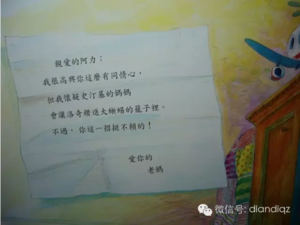 親愛的阿力：
我很高興你這麼有同情心，
但我懷疑史汀基的媽媽
會讓洛奇搬進大蜥蜴的籠子裡。
不過，你這一招挺不賴的！
愛你的
老媽
微信号: diandiqz